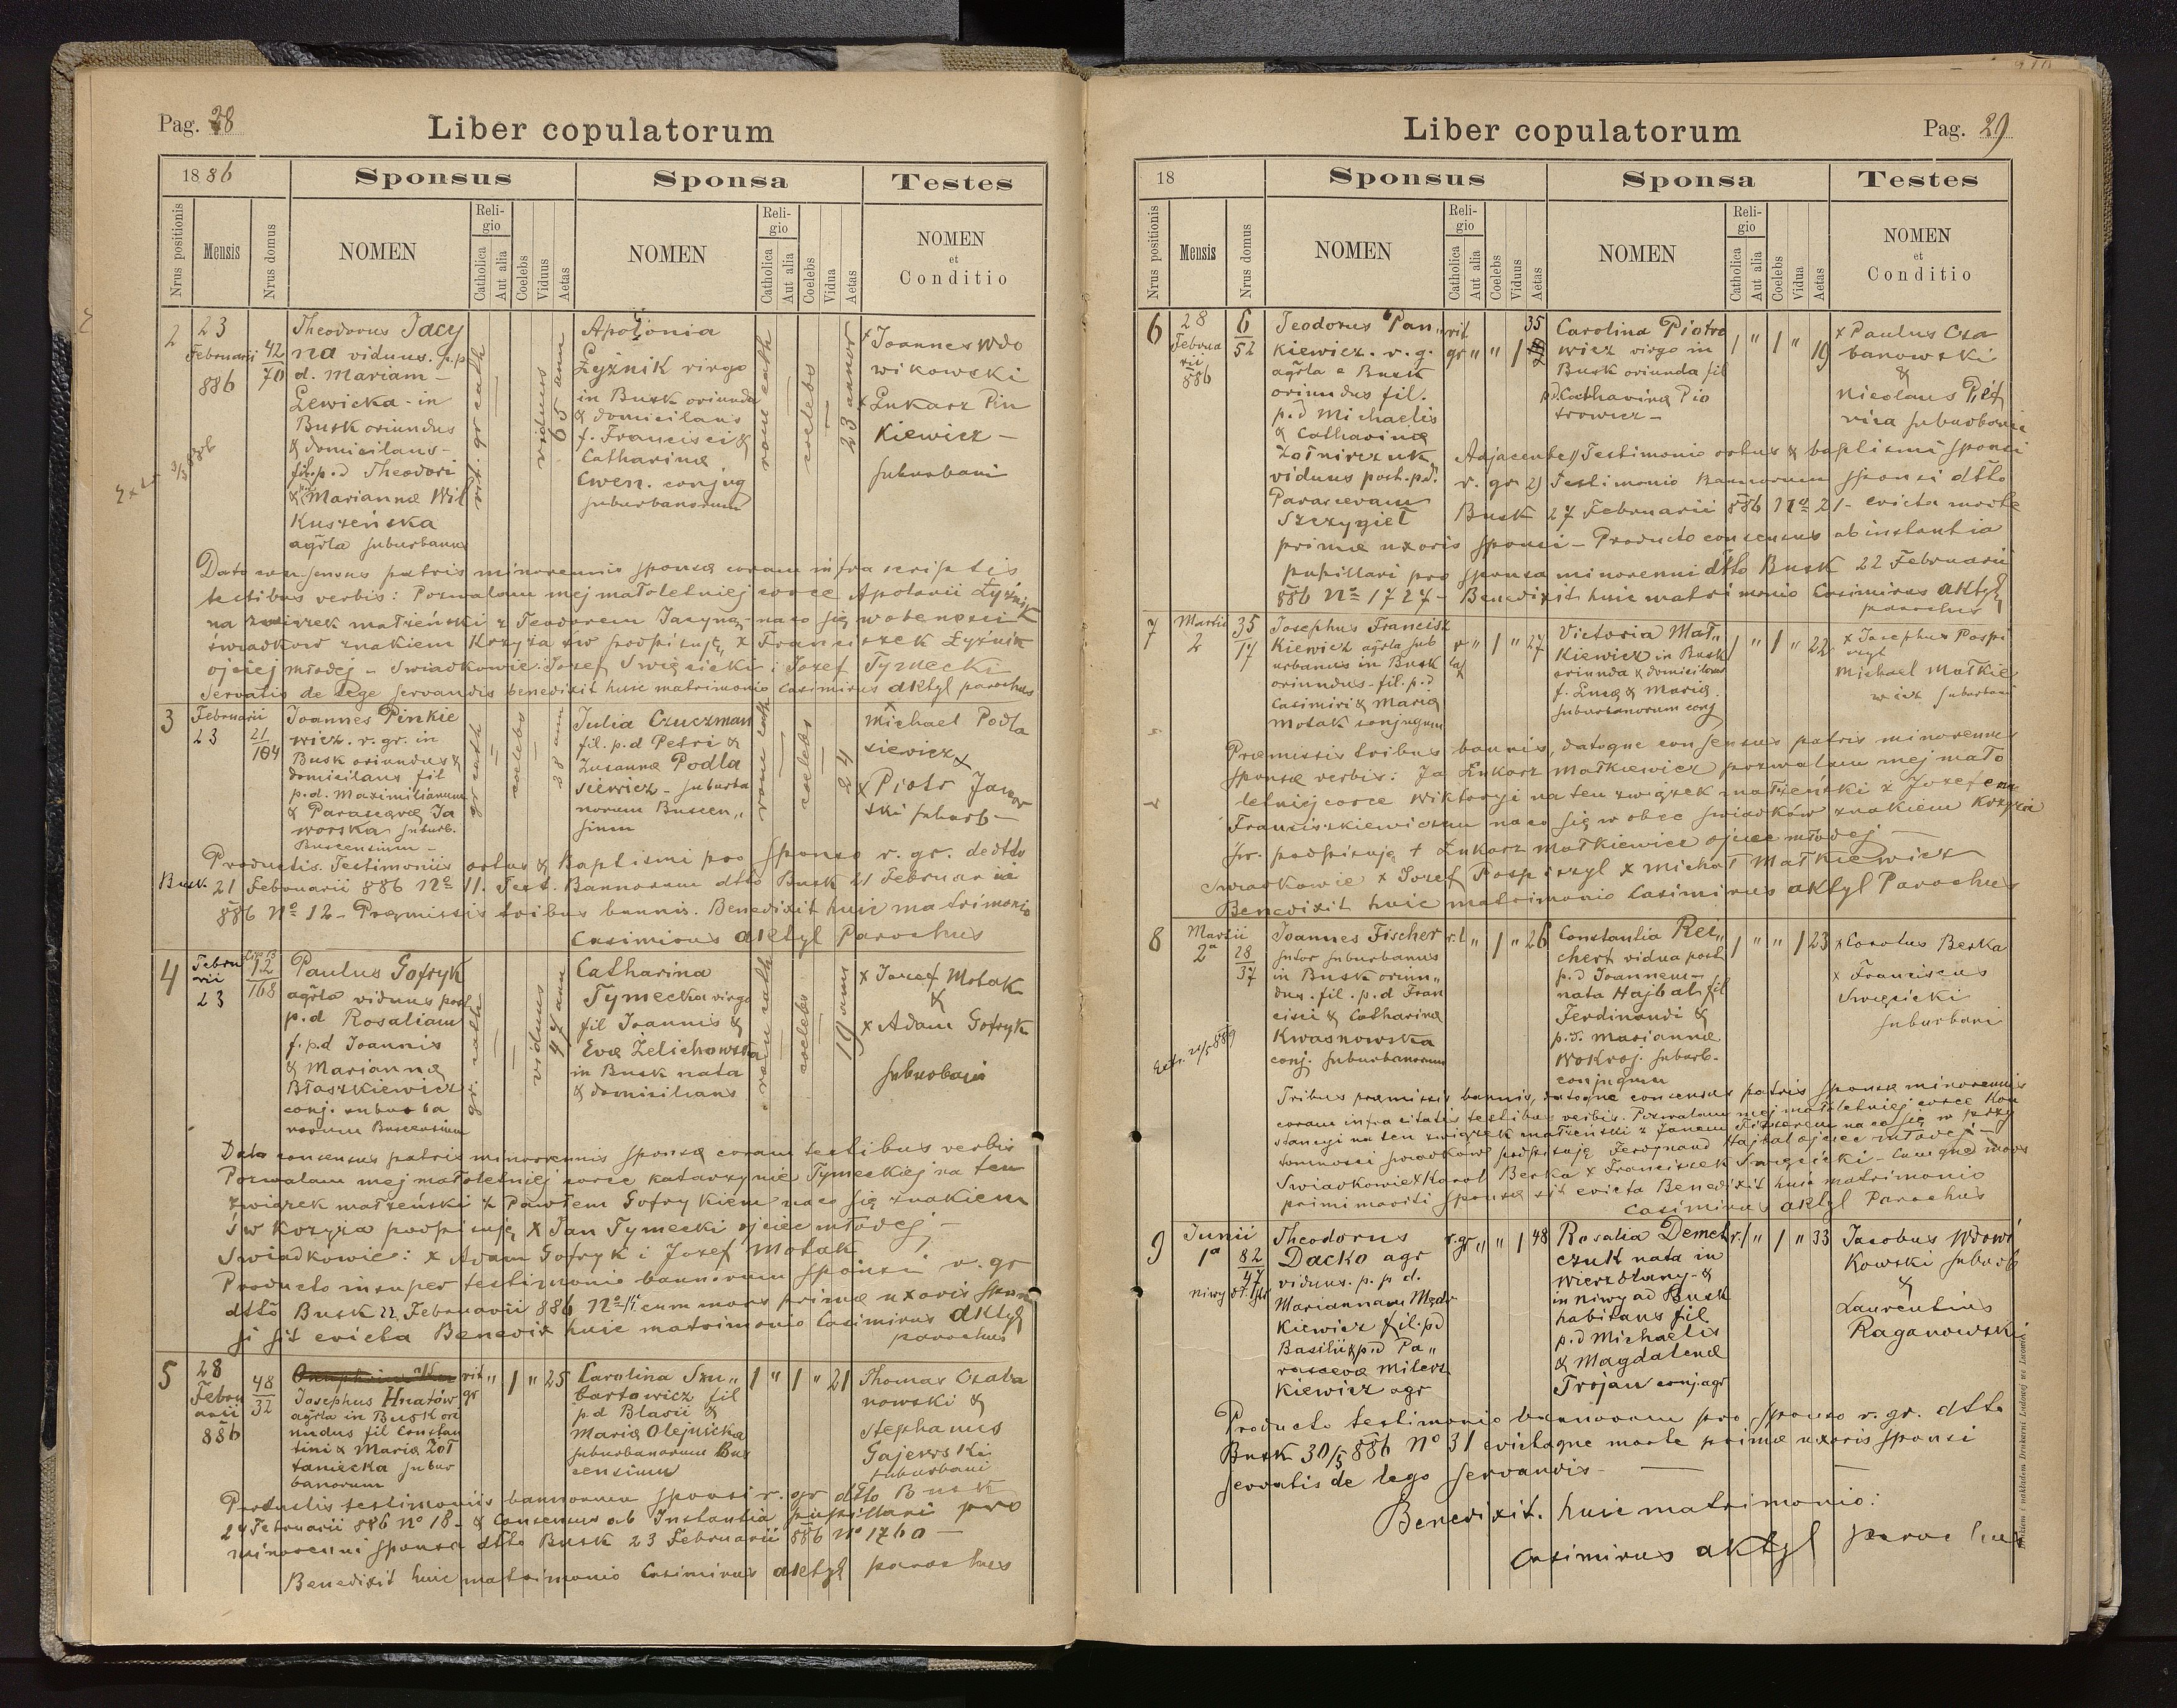 Pag. 28
Liber copulatorum
1886
Sponsus
Sponsa
Testes
Nrus positionis
Mensis
Nrus domus
NOMEN
Religio
Catholica
Aut alia
Coelebs
Viduus
Aetas
NOMEN
Religio
Catholica
Aut alia
Coelebs
Vidua
Aetas
NOMEN
et
Conditio
2
23
Februarii
886
42
70
Theodorus Jacy
na viduus. p. p
d. Mariam
Lewicka - in
Busk oriundus
& domicilans -
fil. p. d Theodori
& Marianna Wit
Kuszeńska
agrla suburbanus
rit. gr cath
viduus
65 ann
Apolonia
Łyżnik virgo
in Busk oriunda
& domicilans
f. Francisci &
Catharina
Cwen. conjug
suburbanorum
rom cath
coelebs
23 annor
x Joannes Wdo
wikowski
x Lukasz Pin
kiewicz -
suburbani
Dato consensus patris minorennis sponsa coram infra scriptis
testibus verbis: Pozwalam mej małoletniej corce Apolonii Łyżnik
na związek małżeński z Teodorem Jacyną - na co się w obecności
świadków znakiem Krzyża św podpisuję, x Franciszek Łyżnik
ojciej młodej - Swiadkowie: Jozef Swięcicki i Jozef Tymecki
Servatis de lege servandis benedixit huic matrimonio Casimirus Aktyl parochus
3
Februarii
23
21
104
Joannes Pinkie
wicz. r. gr. in
Busk oriundus &
domicilans fil
p. d. Maximilianum
& Parasceva Ja
worska suburb.
Buscensium -
gr cath
coelebs
28 ann
Julia Czuczman
fil. p. d Petri &
Zusanna Podla
siewicz - suburba
norum Buscen„
sium
rom cath
coelebs
24
Michael Podla
siewicz x
x Piotr Jawor
ski suburb -
Productis Testimoniis ortus & baptismi pro sponso r. gr. de dtto
Busk 21 Februarii 886 No 11. Test. Bannorum dtto Busk 21 Februarii
886 No 12 - Præmissis tribus bannis. Benedixit huic matrimonio
Casimirus Aktyl Parochus
4
Februarii
23
12
168
Paulus Gofryk
agrla viduus post
p. d Rosaliam
f. p. d Joannis
& Marianna
Błaszkiewicz
conj. suburba
norum Buscensium
gr. cath
viduus
47 ann
Catharina
Tymecka virgo
fil Joannis &
Eva Zelichowska
in Busk nata
& domicilians
rom cath
coelebs
19 ann
x Jozef Motak
&
x Adam Gofryk
suburbani
Dato consensus patris minorennis sponsa coram testibus verbis
Pozwalam mej małoletniej corce Katarzynie Tymeckiej na ten
związek małżeński z Pawłem Gofrykiem na co się znakiem
św Krzyża podpisuję x Jan Tymecki ojciec młodej -
Swiadkowie: x Adam Gofryk i Jozef Motak
Producto insuper testimonio bannorum sponsi r. gr
dtto Busk 22 Februarii 886 No cum mors prima uxoris spon
si sit evicta Benedix huic matrimonio Casimirus Aktyl
parochus
5
28
Februarii
886
48
32
Josephus Hnatów
agrla in Busk ori
undus fil Constan
tini & Maria Zoł
taniecka subur
banorum
rit
gr
„ 1 „ 25
Carolina Szu„
bartowicz fil
p. d Blasii &
Maria Olejnicka
suburbanorum Bus
censium
1 „ 1 „ 21
Thomas Czaba
nowski &
Stephanus
Gajewski
suburbani
Productis testimoniis bannorum sponsi r. gr dtto Busk
24 Februarii 886 No 18 - & Consensus ab Instantia pupillari pro
minorenni sponsa dtto Busk 23 Februarii 886 No 1760 -
Benedixit huic matrimonio Casimirus Aktyl parochus
Liber copulatorum
Pag. 29
18
Sponsus
Sponsa
Testes
Nrus positionis
Mensis
Nrus domus
NOMEN
Religio
Catholica
Aut alia
Coelebs
Viduus
Aetas
NOMEN
Religio
Catholica
Aut alia
Coelebs
Vidua
Aetas
NOMEN
et
Conditio
6
28
Februa
rii
886
6
52
Teodorus Pan„
kiewicz. r. g.
agrla e Busk
oriundus fil.
p. d Michaelis
& Catharina
Żołnirczuk
viduus post. p. d.
Parascevam
Szczygieł
rit
gr „ „ 1
35
Carolina Piotro
wicz virgo in
Busk oriunda fil
p. d. Catharina Pio
trowicz -
1 „ 1 „ 19
x Paulus Cza
banowski
&
Nicolaus
suburbani
Adjacente 1) Testimonio ortus & baptismi sponsi
r. gr 2) Testimonio Bannorum sponsi dtto
Busk 27 Februarii 886 No 21 - evicta morte
prima uxoris sponsi - Producto consensus ab instantia
pupillari pro sponsa minorenni dtto Busk 22 Februarii
886 No 1727 - Benedixit huic matrimonio Casimirus Aktyl
parochus
7
Martii
2
35
17
Josephus Francisz
kiewicz agrla sub
urbanus in Busk
oriundus - fil. p. d
Casimiri & Maria
Motak conjugum
r „ 1 „ 27
lat
Victoria Mał„
kiewicz in Busk
oriunda & domicilans
f. Luca & Maria
suburbanorum conj
1 „ 1 „ 22
x Josephus Pospi
szyl
Michael Małkie
wicz suburbani
Præmissis tribus bannis, datoque consensus patris minorennis
sponsa verbis: Ja Łukasz Małkiewicz pozwalam mej mało
letniej corce Wiktoryi na ten związek małżeński z Jozefem
Franciszkiewiczem na co się w obec swiadków znakiem Krzyża
św. podpisuję + Łukasz Małkiewicz ojciec młodej -
Swiadkowie x Jozef Pospiszyl x Michał Małkiewicz
Benedixit huic matrimonio Casimirus Aktyl Parochus
8
Martii
2a
28
37
Joannes Fischer
sutor suburbanus
in Busk oriun„
dus. fil. p. d Fran
cisci & Catharina
Kwasnowska
conj. suburbanorum
r. l „ 1 „ 26
Constantia Rei„
chert vidua post
p. d Joannem -
nata Hajbal fil
Ferdinandi &
p. d. Marianna
Wokroj. suburb.
conjugum
1 „ „ 1 23
x Carolus Berka
x Franciscus
Swięcicki
suburbani
Extr. 24/5 889
Tribus præmissis bannis, datoque consensus patris sponsa minorennis
coram infra citatis testibus verbis. Pozwalam mej małoletniej corce Kon
stancyi na ten związek małżeński z Janem Fiszerem na co się w przy
tomnosci swiadków podpisuję Ferdynand Hajbal ojciec młodej -
Swiadkowie x Karol Berka x Franciszek Swięcicki - Cumque mors
primi mariti sponsa sit evicta Benedixit huic matrimonio
Casimirus Aktyl Parochus
9
Junii
1a
82
47
niwy
Theodorus
Dacko agr
viduus. p. p d.
Mariannam
kiewicz fil. p d
Basilii & p. d Pa„
rasceva Milecz
kiewicz agr
r. gr „ „ 1 48
Rosalia Demet
czuk nata in
Wierzblany - &
in niwy ad Busk
habitans fil
p. d Michaelis
& Magdalena
Trojan conj. agr
r. l „ 1 „ 33
Jacobus Wdowi
kowski suburb
&
Laurentius
Raganowski
Producto testimonio bannorum pro sponso r. gr. dtto
Busk 30/5 886 No 31 evictaque morte prima uxoris sponsi
servatis de lege servandis -
Benedixit. huic matrimonio:
Casimirus Aktyl parochus
Drukiem i nakładem Drukarni Ludowej we Lwowie